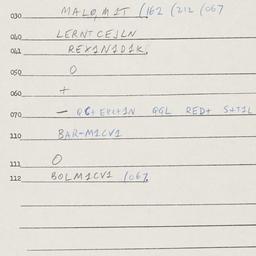 030 MALO, M1T (162 (212 (067
040 LERNTCEJLN
041 REX1N1D1K.
050 O
060 +
070 — QC+ EPC+1N QGL RED+ S+T1L
110 BAR-M1CV1
111 O
112 BOLM1CV1 (067.